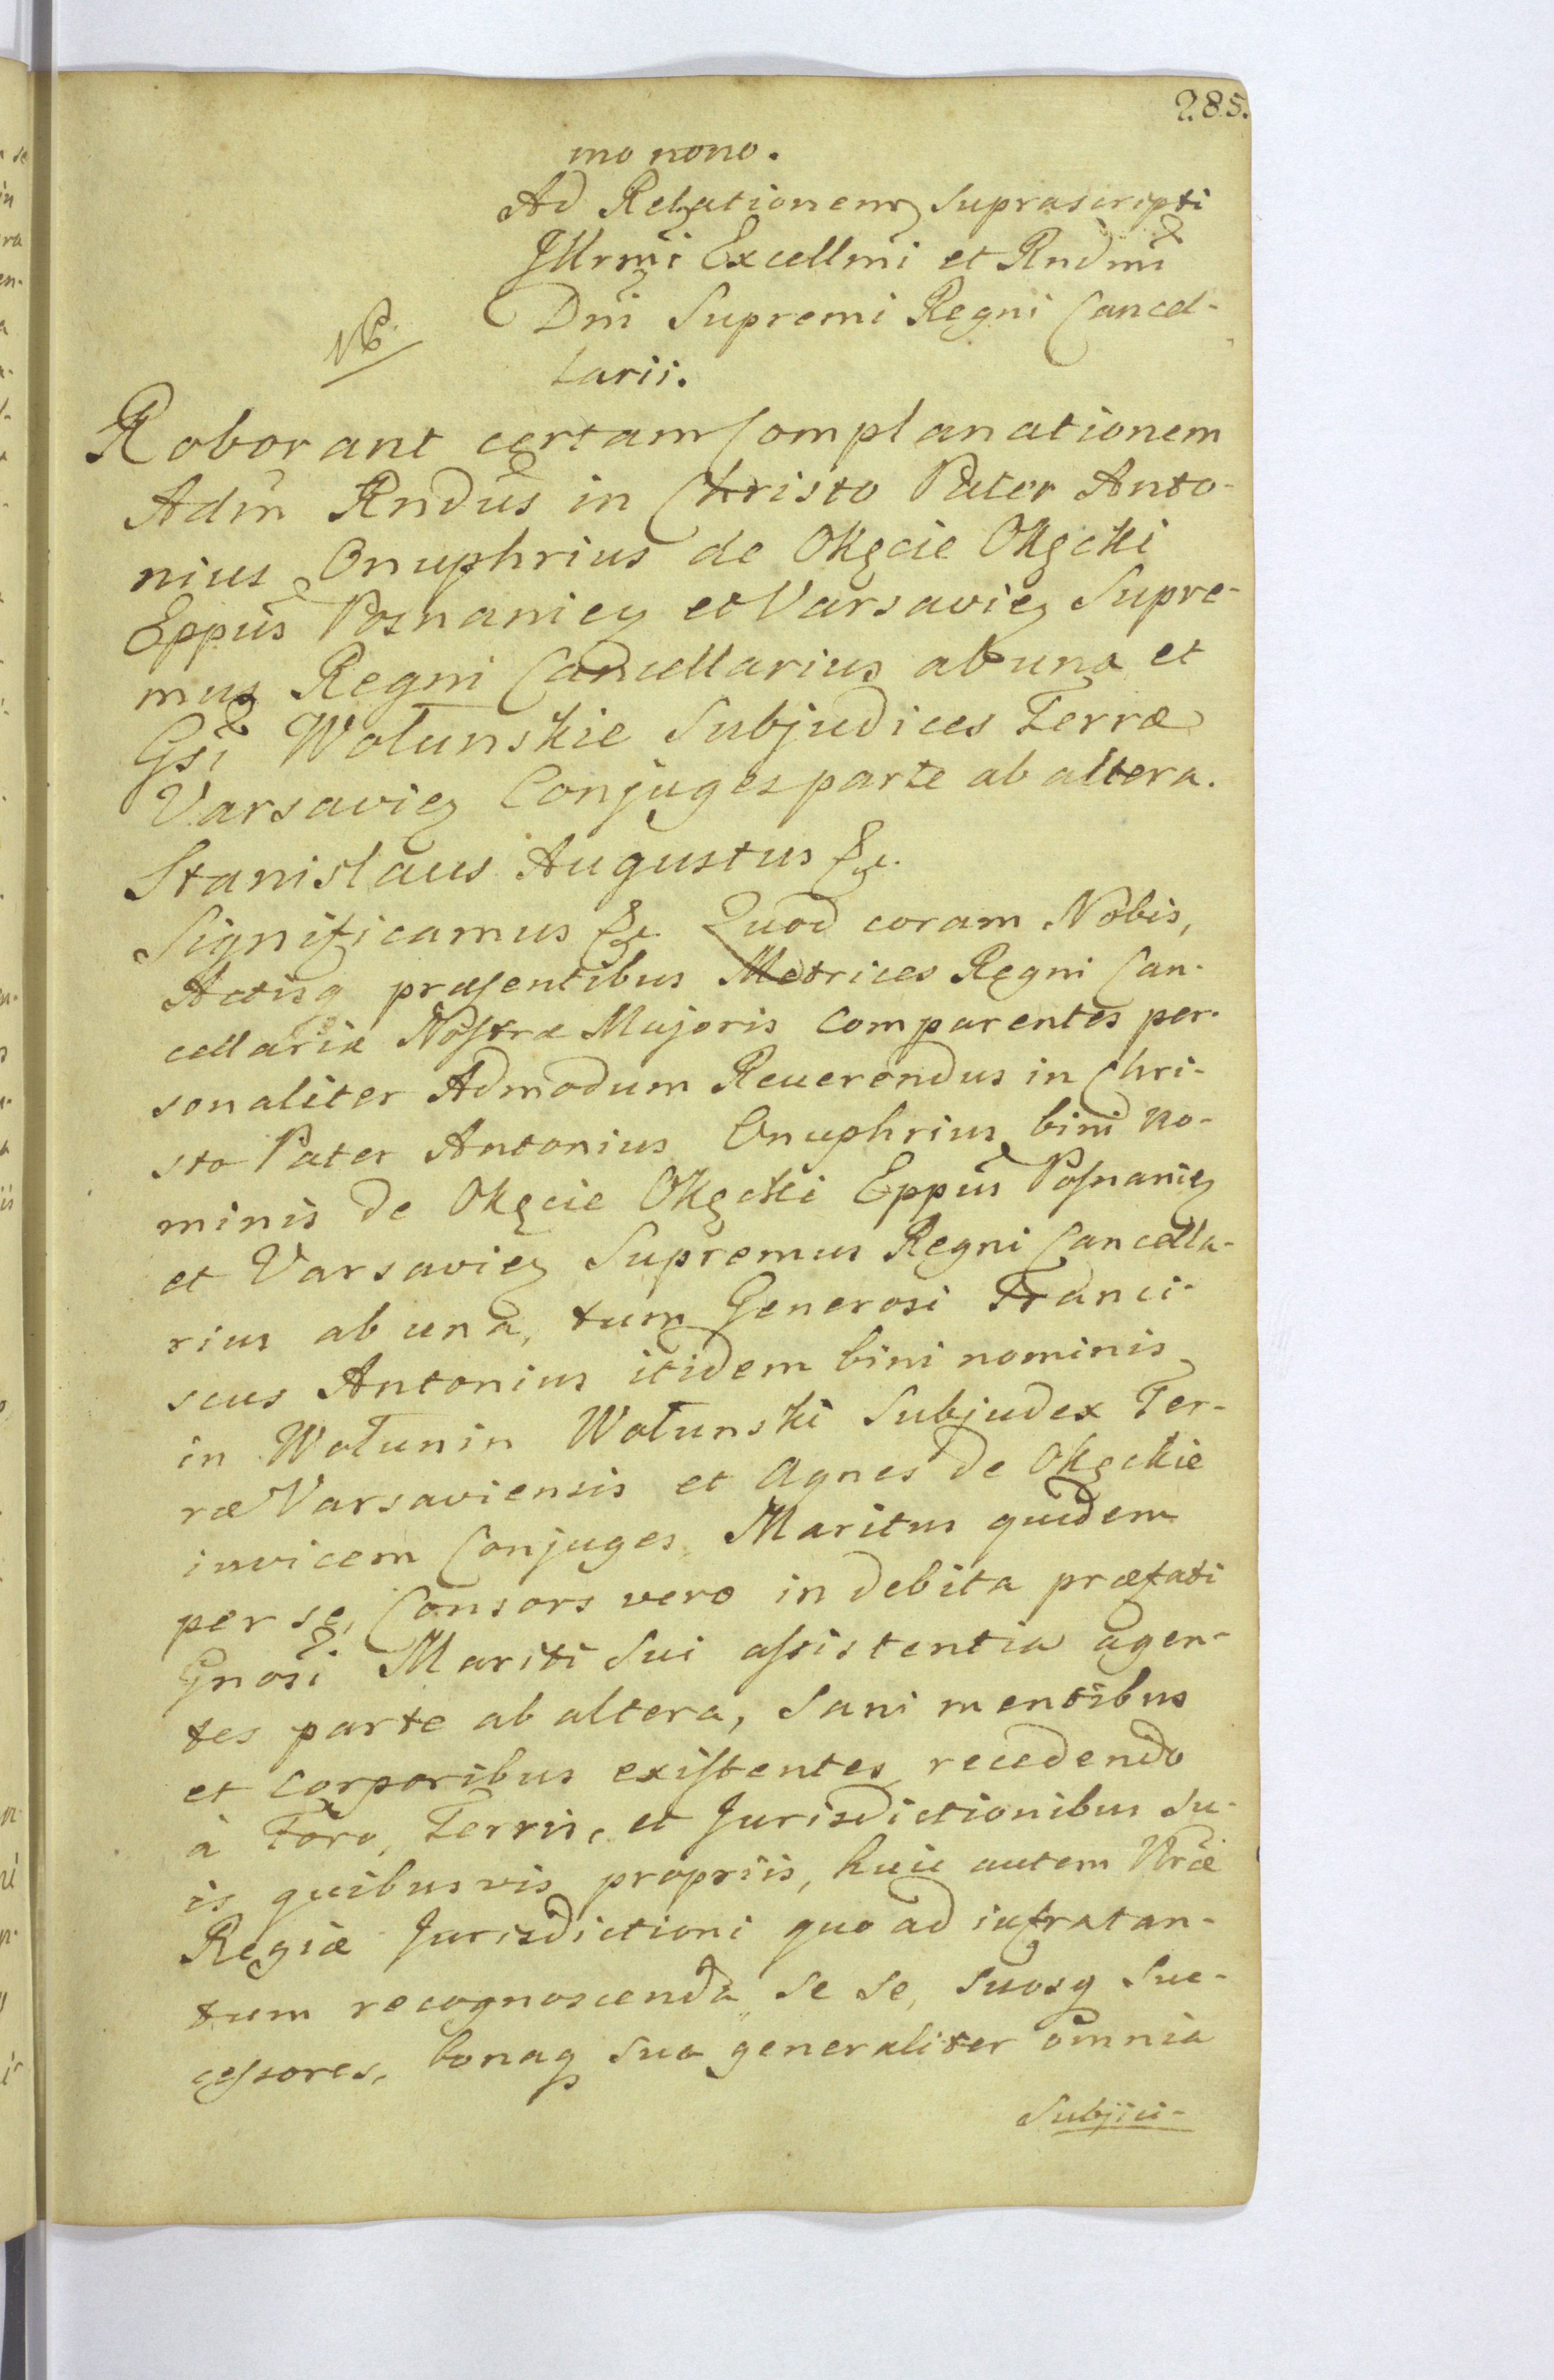 285.
mo nono.
Ad Relationem Suprascripti
Jllrmi Excellmi et Rndmi
Dni Supremi Regni Cancel-
larii.
NB.
Roborant certam Complanationem
Adm Rndus in Christo Pater Anto-
nius Onuphrius de Okęcie Okęcki
Eppus Posnanien et Varsavien Supre-
mus Regni Cancellarius ab una et
Gsi Wołunskie Subjudices Terræ
Varsavien Conjuges parte ab altera.
Stanislaus Augustus &c.
Significamus &c. Quod coram Nobis,
Actisq præsentibus Metrices Regni Can-
cellariæ Nostræ Majoris Comparentes per-
sonaliter Admodum Reuerendus in Chri-
sto Pater Antonius Onuphrius bini no-
minis de Okęcie Okęcki Eppus Posnanien
et Varsavien Supremus Regni Cancella-
rius ab una, tum Generosi Franci-
scus Antonius itidem bini nominis
in Wołunin Wołunski Subjudex Ter-
ræ Varsaviensis et Agnes de Okęckie
invicem Conjuges, Maritus quidem
per se, Consors vero in debita præfati
Gnosi Mariti Sui assistentia agen-
tes parte ab altera, Sani mentibus
et Corporibus existentes recedendo
à Foro, Terris, et Jurisdictionibus Su-
is quibusvis propriis, huic autem Nræ
Regiæ Jurisdictioni quo ad infra tan-
tum recognoscenda, Se Se, Suosq Suc-
cessores, bonaq Sua generaliter omnia
Subjici-